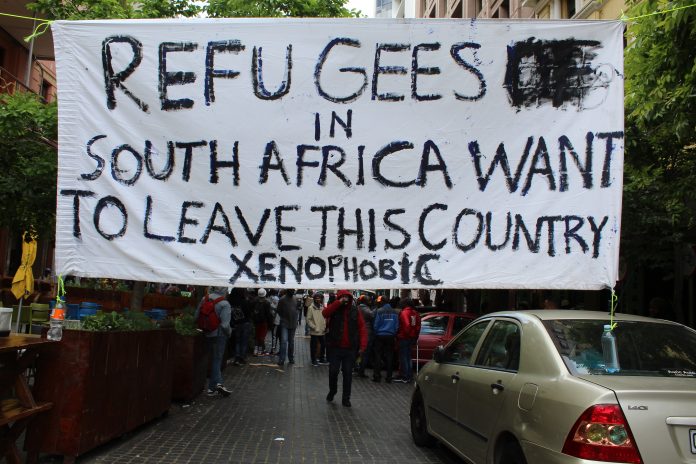 REFUGEES
IN
SOUTH AFRICA WANT
TO LEAVE THIS COUNTRY
XENOPHOBIC
140i